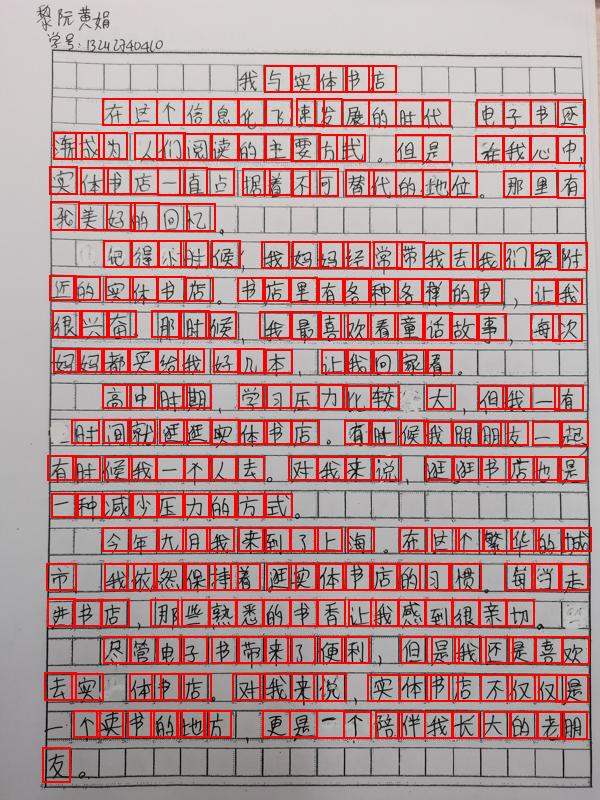 黎阮黄娟
学号:13242740410
我与实体书店
在这个信息化飞速发展的时代，电子书逐
渐成为人们阅读的主要方式。但是，在我心中，
实体书店一直占据着不可替代的地位。那里有
我美好的回忆。
记得小时候，我妈妈经常带我去我们家附
近的实体书店。书店里有各种各样的书，让我
很兴奋。那时候，我最喜欢看童话故事，每次
妈妈都买给我好几本，让我回家看。
高中时期，学习压力比较大，但我一有
时间就逛逛实体书店。有时候我跟朋友一起，
有时候我一个人去。对我来说，逛逛书店也是
一种减少压力的方式。
今年九月我来到了上海。在这个繁华的城
市，我依然保持着逛实体书店的习惯。每当走
进书店，那些熟悉的书香让我感到很亲切。
尽管电子书带来了便利，但是我还是喜欢
去实体书店。对我来说，实体书店不仅仅是
一个卖书的地方，更是一个陪伴我长大的老朋
友。